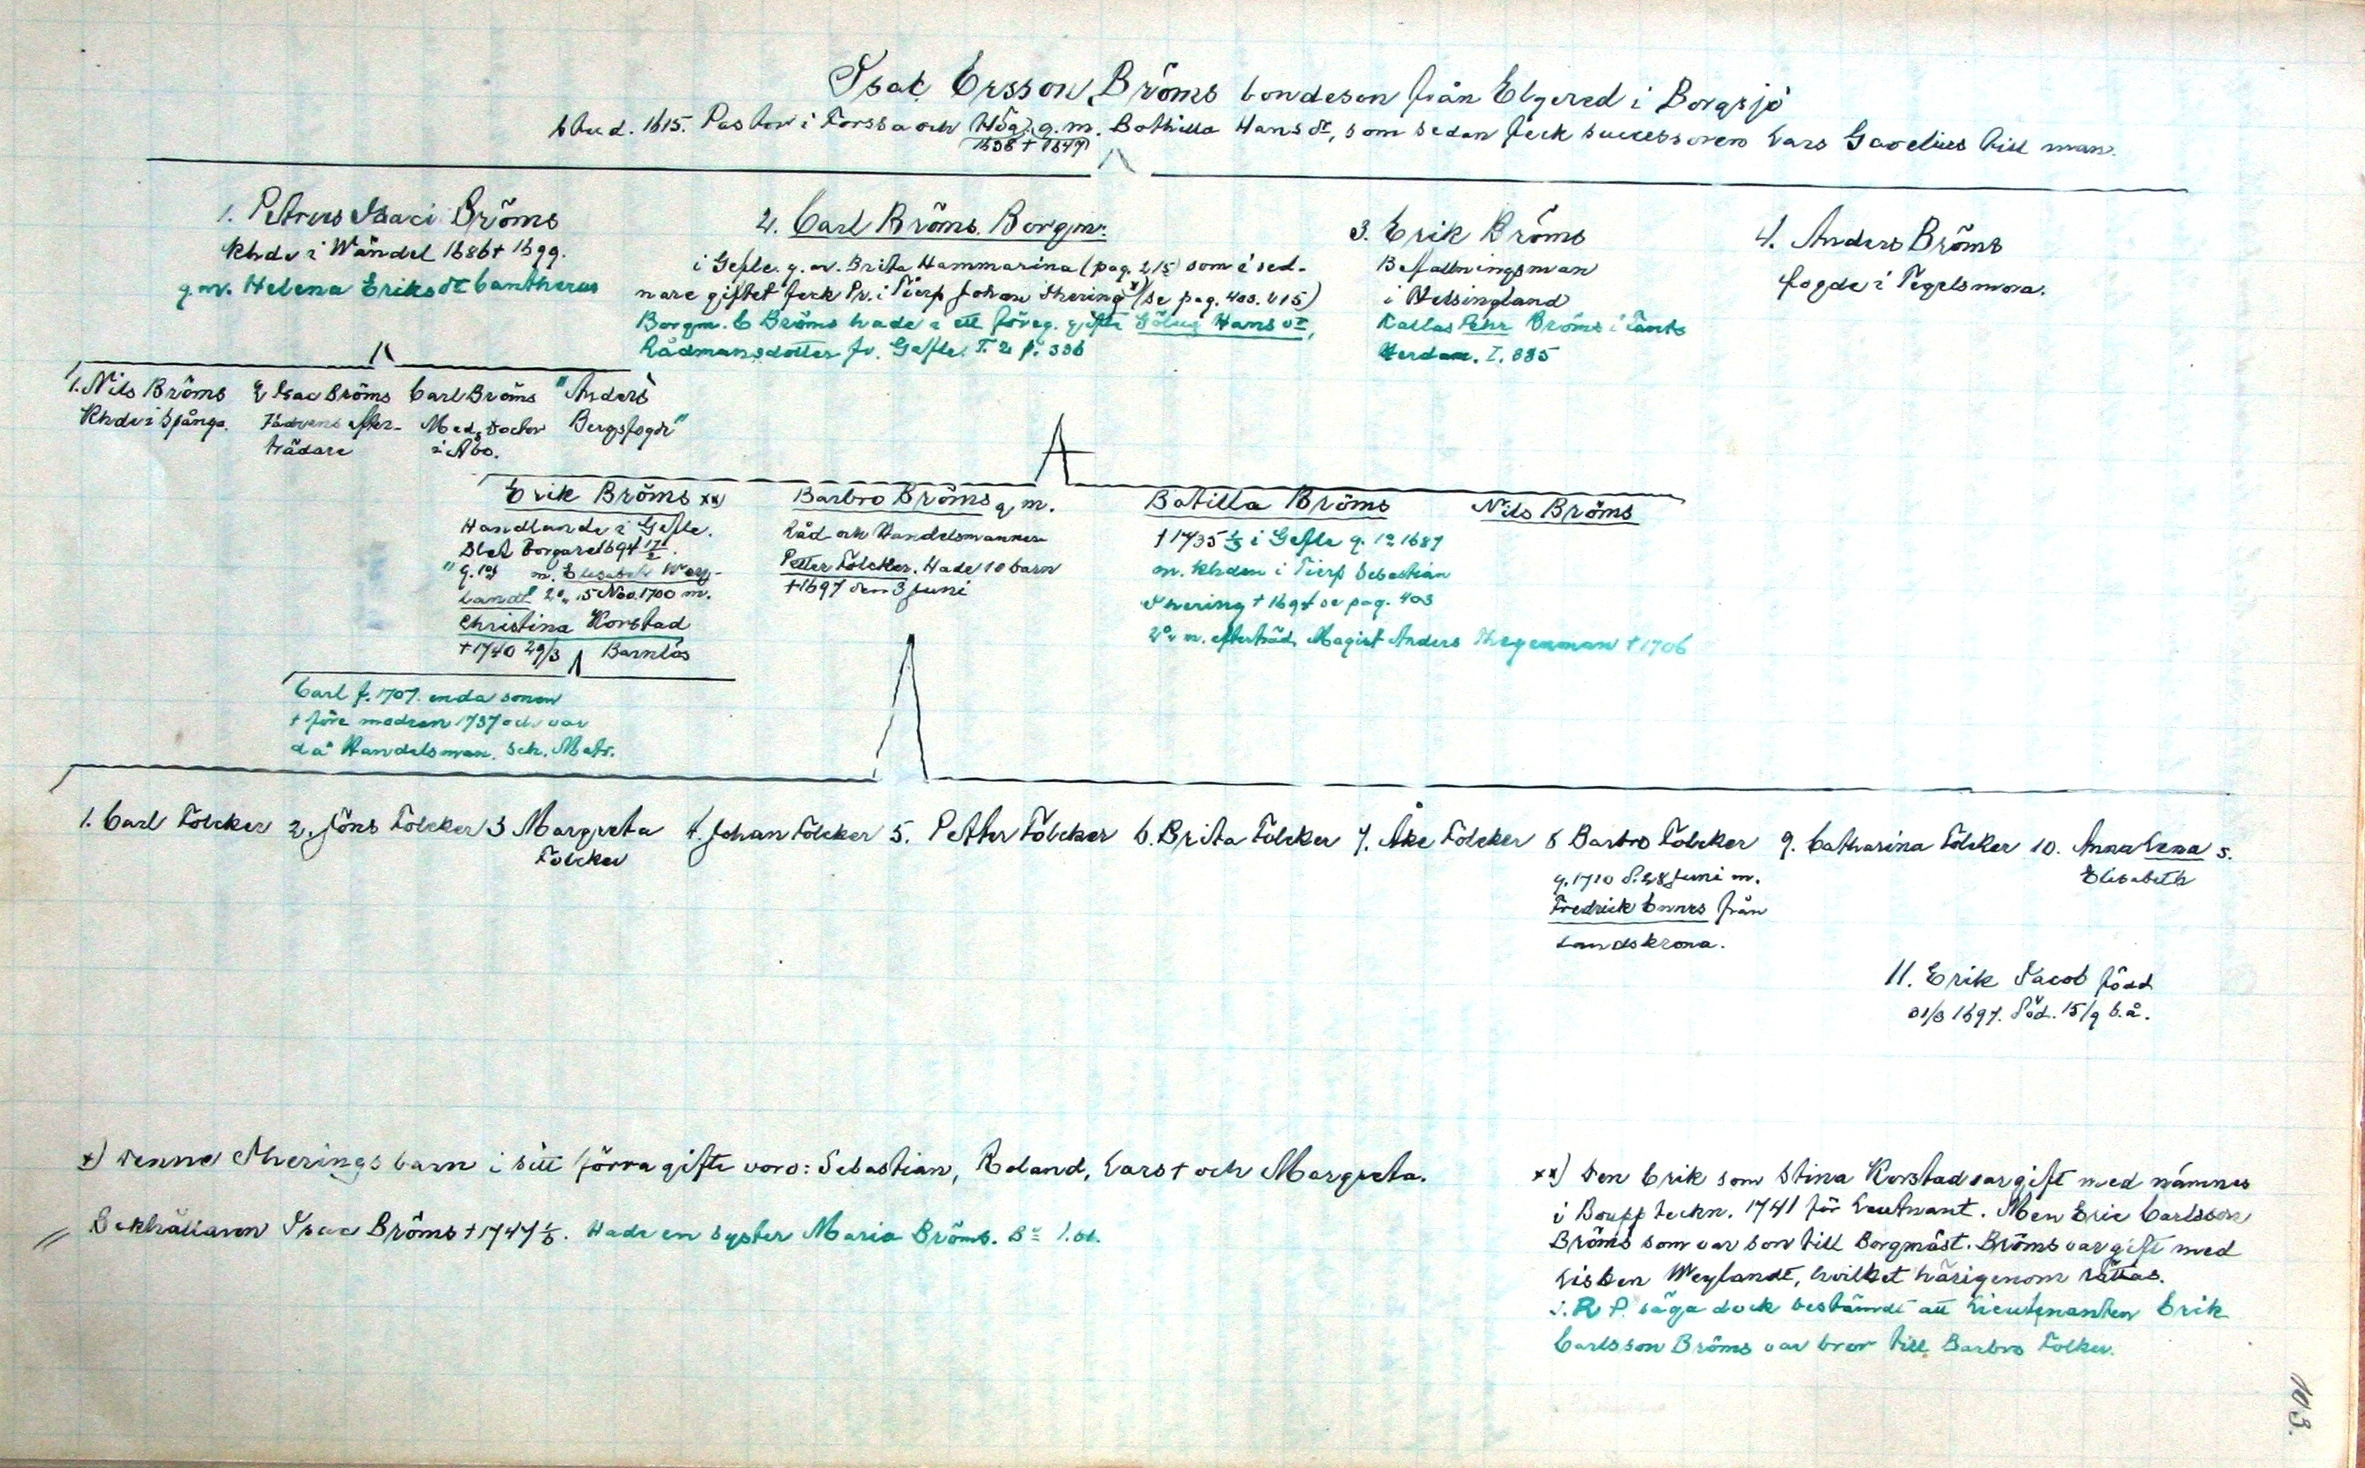 Isac Ersson Bröms bondeson från Elgered i Borgsjö
stud. 1615. Pastor i Forssa och Hög, g.m. Bothilla Hansdr, som sedan feck successoren Lars Gavelius till man.
1636 † 1647
1. Petrus Isaci Bröms
Khde i Wändel 1686 † 1699.
g.m. Helena Eriksdr Cantherus
2. Carl Bröms. Borgm:
i Gefle. g.m. Brita Hammarina (pag. 215) som i sed-
nare giftet feck Pr. i Tierp Johan Ihering x) (se pag. 403. 415)
Borgm. C Bröms hade i ett föreg. gifte Hansdr,
Rådmansdotter fr. Gefle. T. 2 p. 336
3. Erik Bröms
Befallningsman
i Helsingland
Kallas Pehr Bröms i
Herdam. I. 885
4. Anders Bröms
fogde i Tegelsmora.
1. Nils Bröms 2 Isac Bröms Carl Bröms "Anders
Khde i Spånga. Fadrens efter- Med. Doctor Bergsfogde"
trädare i Åbo.
Erik Bröms xx)
Handlande i Gefle.
Blef Borgare 1694 17/2.
"g. 1o m. Elisabeth Wey-
landt" 2o 15 Nov. 1700 m.
Christina Korstad
† 1740 29/3 Barnlös
Barbro Bröms g.m.
Råd och Handelsmannen
Petter Fölcker. Hade 10 barn
† 1697 den 3 Juni
Botilla Bröms
† 1735 i Gefle g. 1o 1687
m. Khden i Tierp Sebastian
Ihering † 1694 se pag. 403
2o m. efterträd. Magist Anders † 1706
Nils Bröms
Carl f. 1707. enda sonen
† före modren 1737 och var
då Handelsman. Sch. Matr.
1. Carl Fölcker 2. Jöns Fölcker 3 Margreta 4. Johan Fölcker 5. Petter Fölcker 6. Brita Fölcker 7. Åke Fölcker 8 Barbro Fölcker 9. Catharina Fölcker 10. Anna Lena s.
Fölcker
Elisabeth
g. 1710 d. 28 Juni m.
Fredrick Ennes från
Landskrona.
11. Erik Jacob född
31/3 1697. Död. 15/9 s.å.
x) Denne Iherings barn i sitt förra gifte voro: Sebastian, Roland, Lars † och Margreta.
Bokhållaren Isac Bröms † 1747. Hade en syster Maria Bröms.
xx) Den Erik som Stina Korstad var gift med nämnes
i Boupp teckn. 1741 för Leutnant. Men Eric Carlsson
Bröms som var son till Borgmäst. Bröms var gift med
Lisken Weylandt, hvilket härigenom rättas.
J. R P. säga dock bestämdt att Lieutenanten Erik
Carlsson Bröms var bror till Barbro Folker.
103.